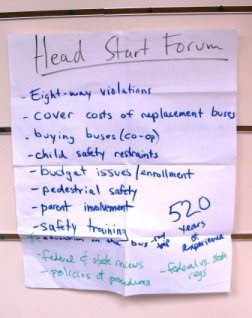 Head Start Forum
- Eight-way violations
- cover costs of replacement buses
- buying buses (co-op)
- child safety restraints
- budget issues/enrollment
- pedestrial safety
- parent involvement
- safety training
520
years
of
experience
education in the bus and
- federal & state reviews
- policies & procedures
- federal vs. state
regs